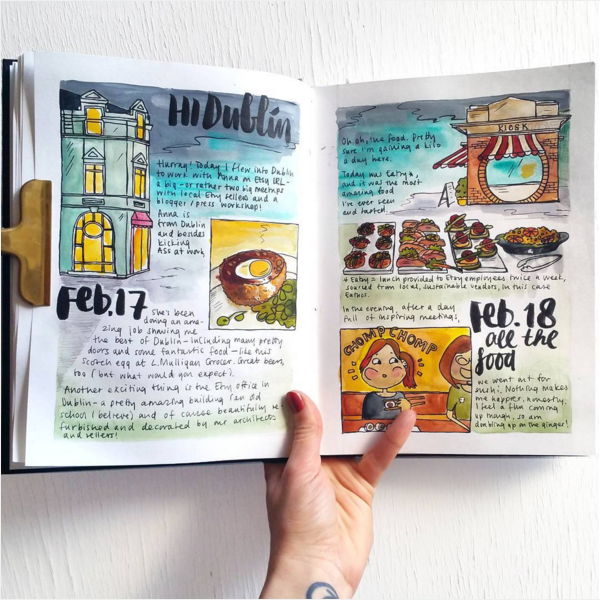 HI Dublin
Hurray! Today I flew into Dublin
to work with Anna on Etsy IRL -
a big - or rather two big meetups
with local Etsy sellers and a
blogger / press workshop!
Anna is
from Dublin
and besides
kicking
Ass at work,
Feb.17
she's been
doing an ama-
zing job showing me
the best of Dublin - including many pretty
doors and some fantastic food - like this
scotch egg at L. Mulligan Grocer. Great beers,
too (but what would you expect).
Another exciting thing is the Etsy office in
Dublin - a pretty amazing building (an old
school I believe) and of cause beautifully re
furbished and decorated by mr architects
and sellers!
KIOSK
Oh oh, the food. Pretty
sure I'm gaining a kilo
a day here.
Today was Eatsy,
and it was the most
amazing food
I've ever seen
and tasted.
Eatsy = lunch provided to Etsy employees twice a week,
sourced from local, sustainable vendors, in this case
In the evening after a day
full of inspiring meetings,
Feb.18
all the
food
CHOMP CHOMP
we went out for
sushi. Nothing makes
me happier, honestly.
I feel a flu coming
up though, so am
doubling up on the ginger!